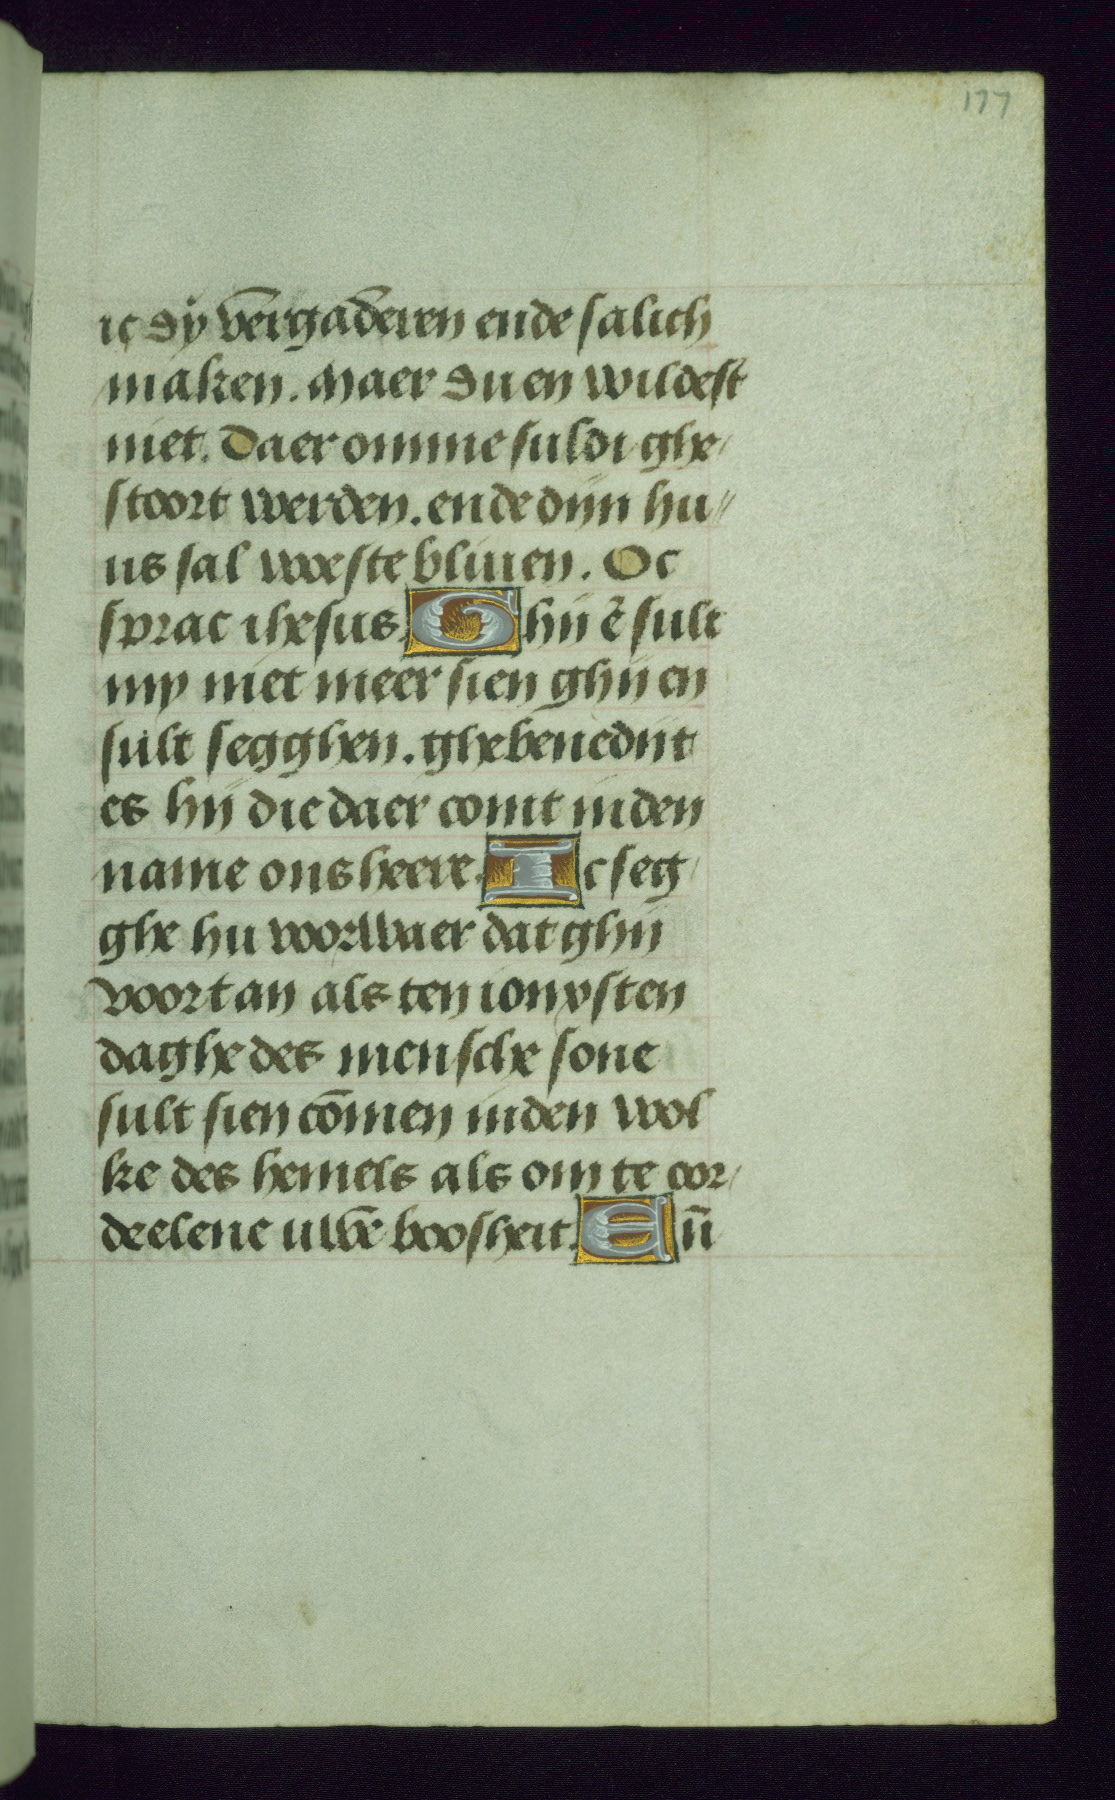 177
ic dy v̄ergad̄eren ende salich
maken. Maer du en wildest
niet. Daer omme suldi ghe/
stoort werden. ende dijn hu//
us sal woeste bliuen. Oc
sprac ihesus. Ghij ē sult
my niet meer sien ghij en
sult segghen. ghebenedijt
es hij die daer comt in den
name ons heere. Ic seg/
ghe hu voorwaer dat ghij
voort an als ten ioncsten
daghe des mensche sone
sult sien cōmen in den wol
ke des hemels als om te oor/
deelene uwē boosheit. En̄